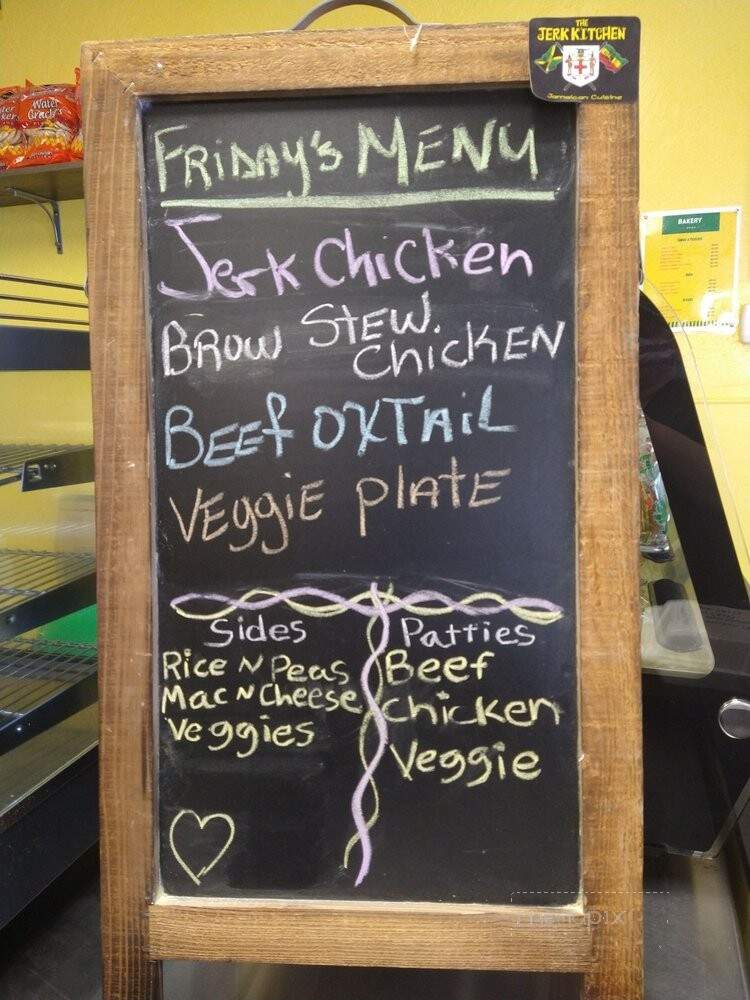 THE
JERK KITCHEN
Jamaican Cuisine
Water
Crackers
BAKERY
FRIDAY'S MENU
Jerk Chicken
BROW STEW.
ChicKEN
BEEf OXTAiL
VEggiE plATE
Sides
Rice N Peas
Mac N Cheese
Veggies
Patties
Beef
Chicken
Veggie